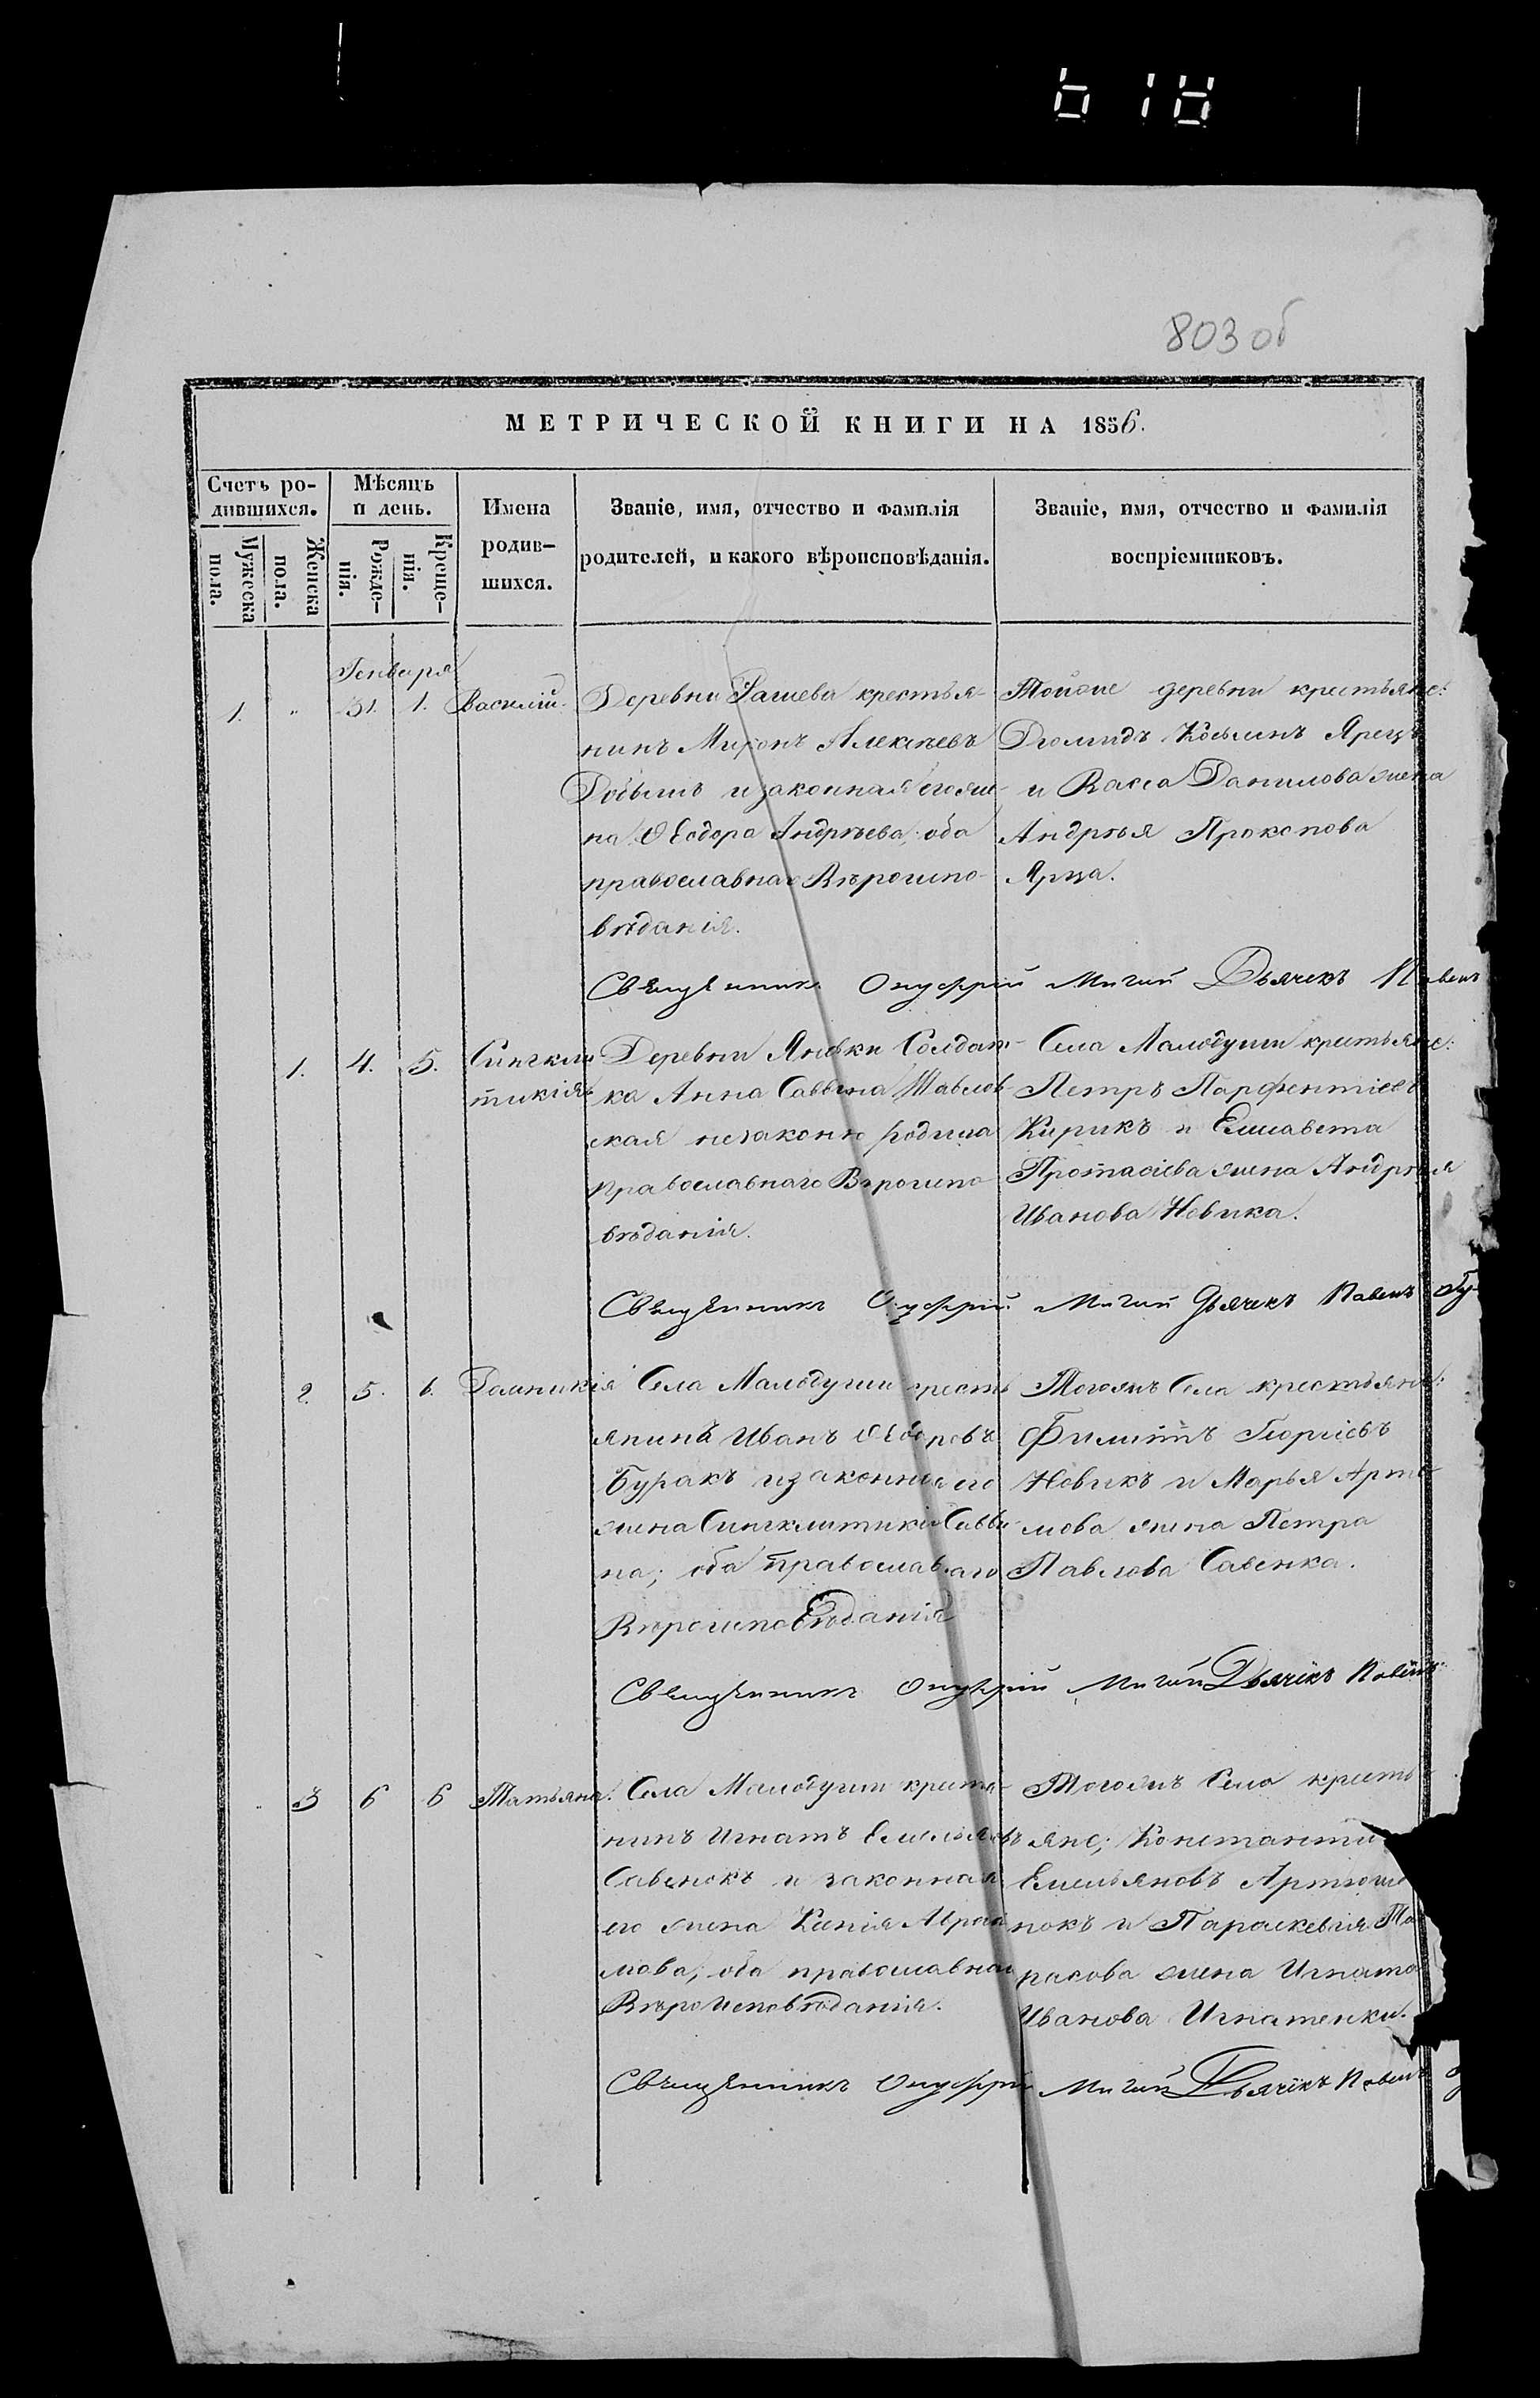 803 об
МЕТРИЧЕСКОЙ КНИГИ НА 1856.
Счетъ ро-
дившихся.
Мужеска
пола.
Женска
пола.
Мѣсяцъ
и день.
Рожде-
нія.
Креще-
нія.
Имена
родив-
шихся.
Званіе, имя, отчество и фамилія
родителей, и какого вѣроисповѣданія.
Званіе, имя, отчество и фамилія
воспріемниковъ.
Генваря
1. " 31. 1. Василій.
Деревни крестья-
нинъ Миронъ Алексѣевъ
и законная его же-
на Ѳеодора Андрѣева; оба
православнаго Вѣроиспо-
вѣданія.
Тойже деревни крестьяне:
Діомидъ Косьминъ Ярецъ
и Васса Данилова жена
Андрѣя Прокопова
Ярца.
Священникъ Онуфрій Мигай Дьячекъ Павелъ
1. 4. 5. Синкли
тикія
Деревни Яновки Солдат-
ка Анна Саввина Павлов
ская незаконно родила
Православнаго Вѣроиспо-
вѣданія.
Села Малодуши крестьяне:
Петръ Парфентіевъ
Кирикъ и Елисавета
Протасіева жена Андрѣя
Иванова Новика.
Священникъ Онуфрій Мигай Дьячекъ Павелъ
2. 5. 6. Домникія
Села Малодуши кресть
янинъ Иванъ Ѳедоровъ
Буракъ и законная его
жена Синклитикія Савви
на; оба православнаго
Вѣроисповѣданія
Тогожъ Села крестьяне:
Филиппъ Георгіевъ
Новикъ и Марья Арте-
мова жена Петра
Павлова Савенка.
Священникъ Онуфрій Мигай Дьячекъ Павелъ
3 6 6 Татьяна.
Села Малодуши крестья-
нинъ Игнатъ Емельяновъ
Савенокъ и законная
его жена Ксенія Авраа
мова; оба православнаго
Вѣроисповѣданія.
Тогожъ Села кресть
яне; Константи
Емельяновъ Артюше
нокъ и Параскевія Та
расова жена Игната
Иванова Игнатенки.
Священникъ Онуфрій Мигай Дьячекъ Павелъ